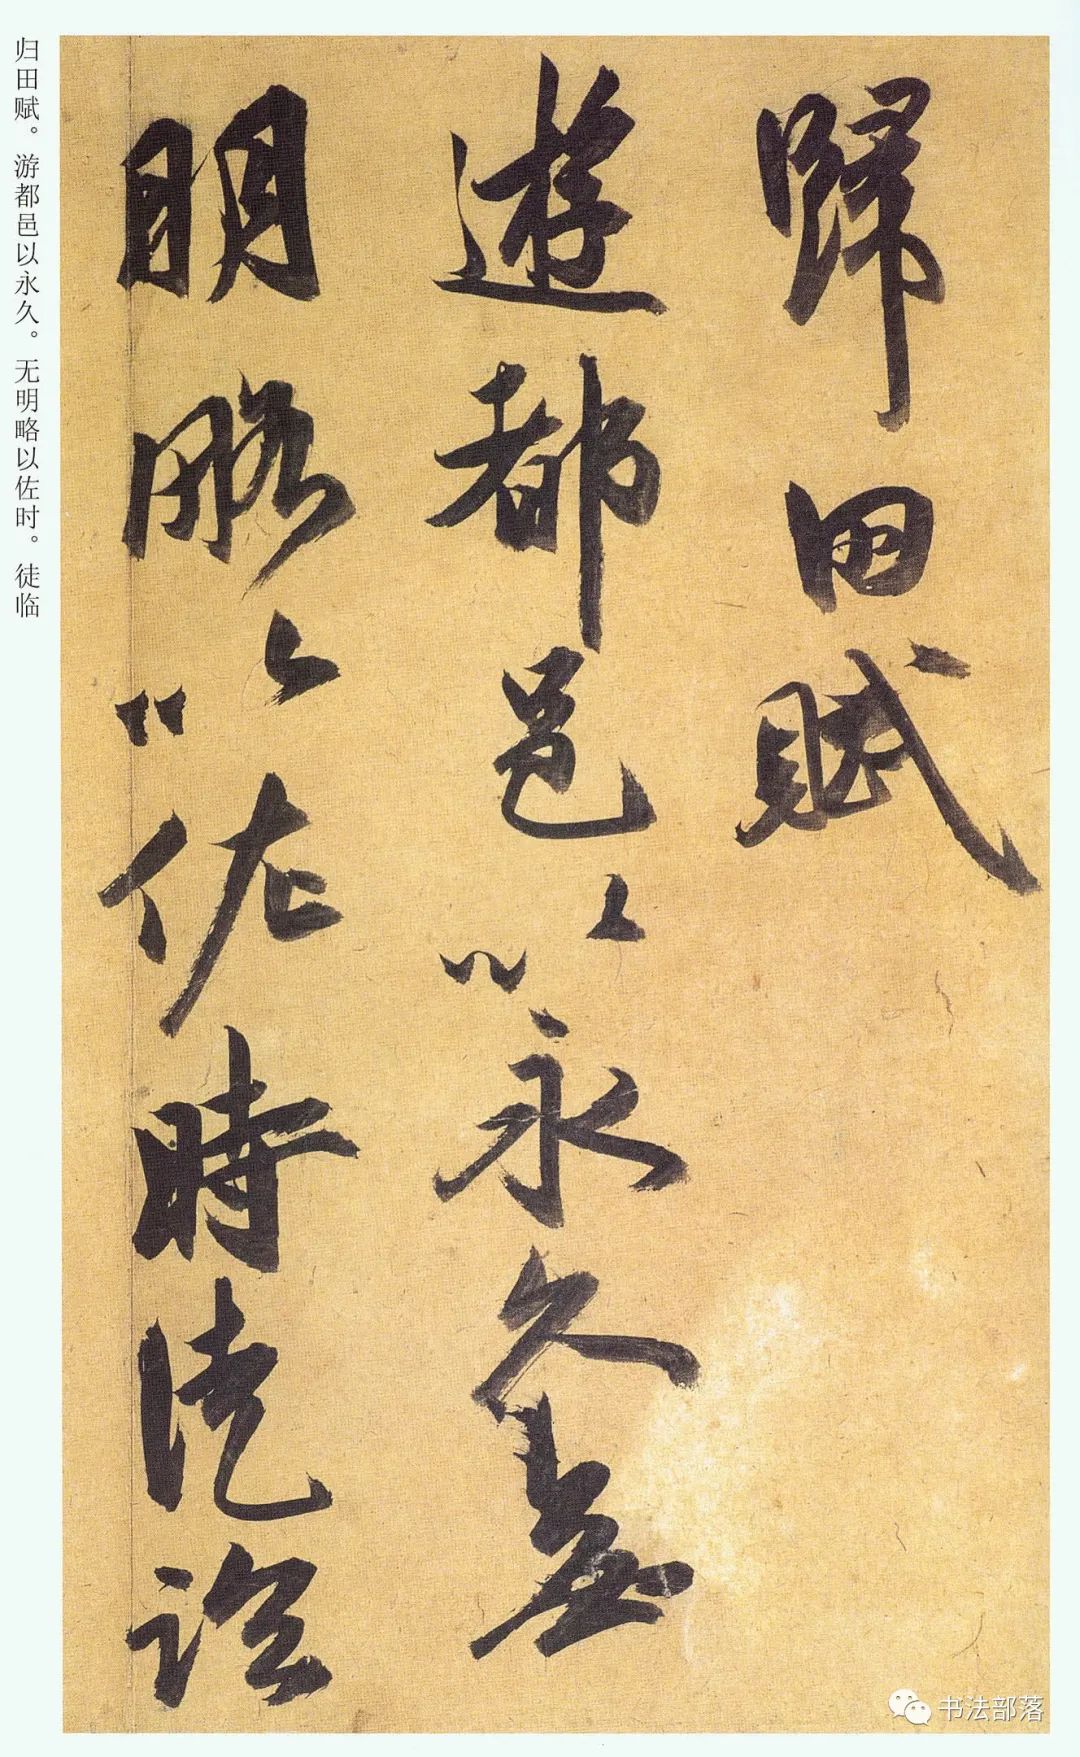 歸田賦
遊都邑以永久無
明略以佐時徒臨
归田赋。游都邑以永久。无明略以佐时。徒临
书法部落